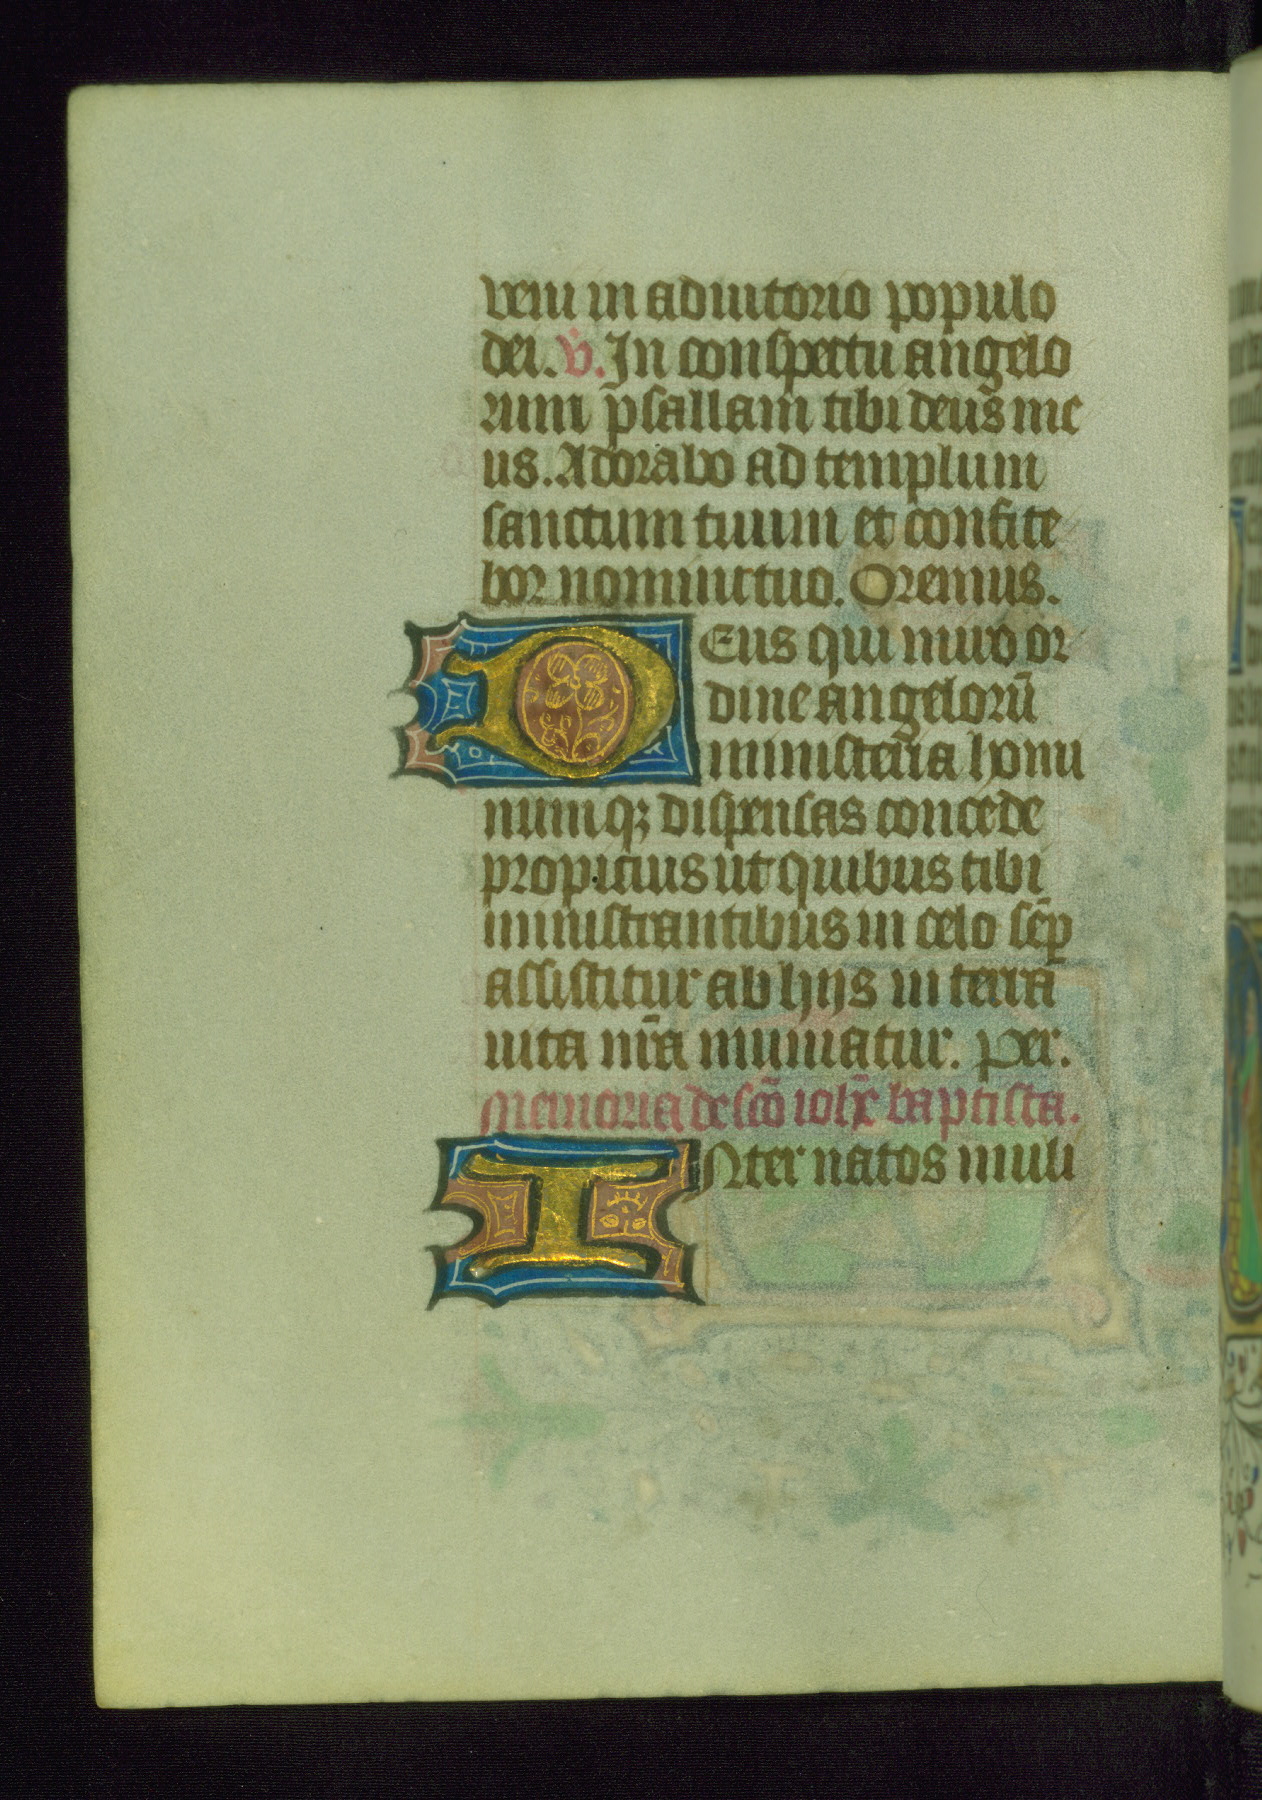 veni in adiutorio populo
dei. v̇. In conspectu angelo
rum psallam tibi deus me
us. Adorabo ad templum
sanctum tuum et confite
bor nomini tuo. Oremus.
DEus qui miro or
dine angelorū
ministeria homi
numqꝫ dispensas concede
propicius ut quibus tibi
ministrantibus in celo sēp
assistitur ab hijs in terra
uita nr̄a muniatur. Per.
Memoria de sc̄o ioh̄e baptista.
INter natos muli